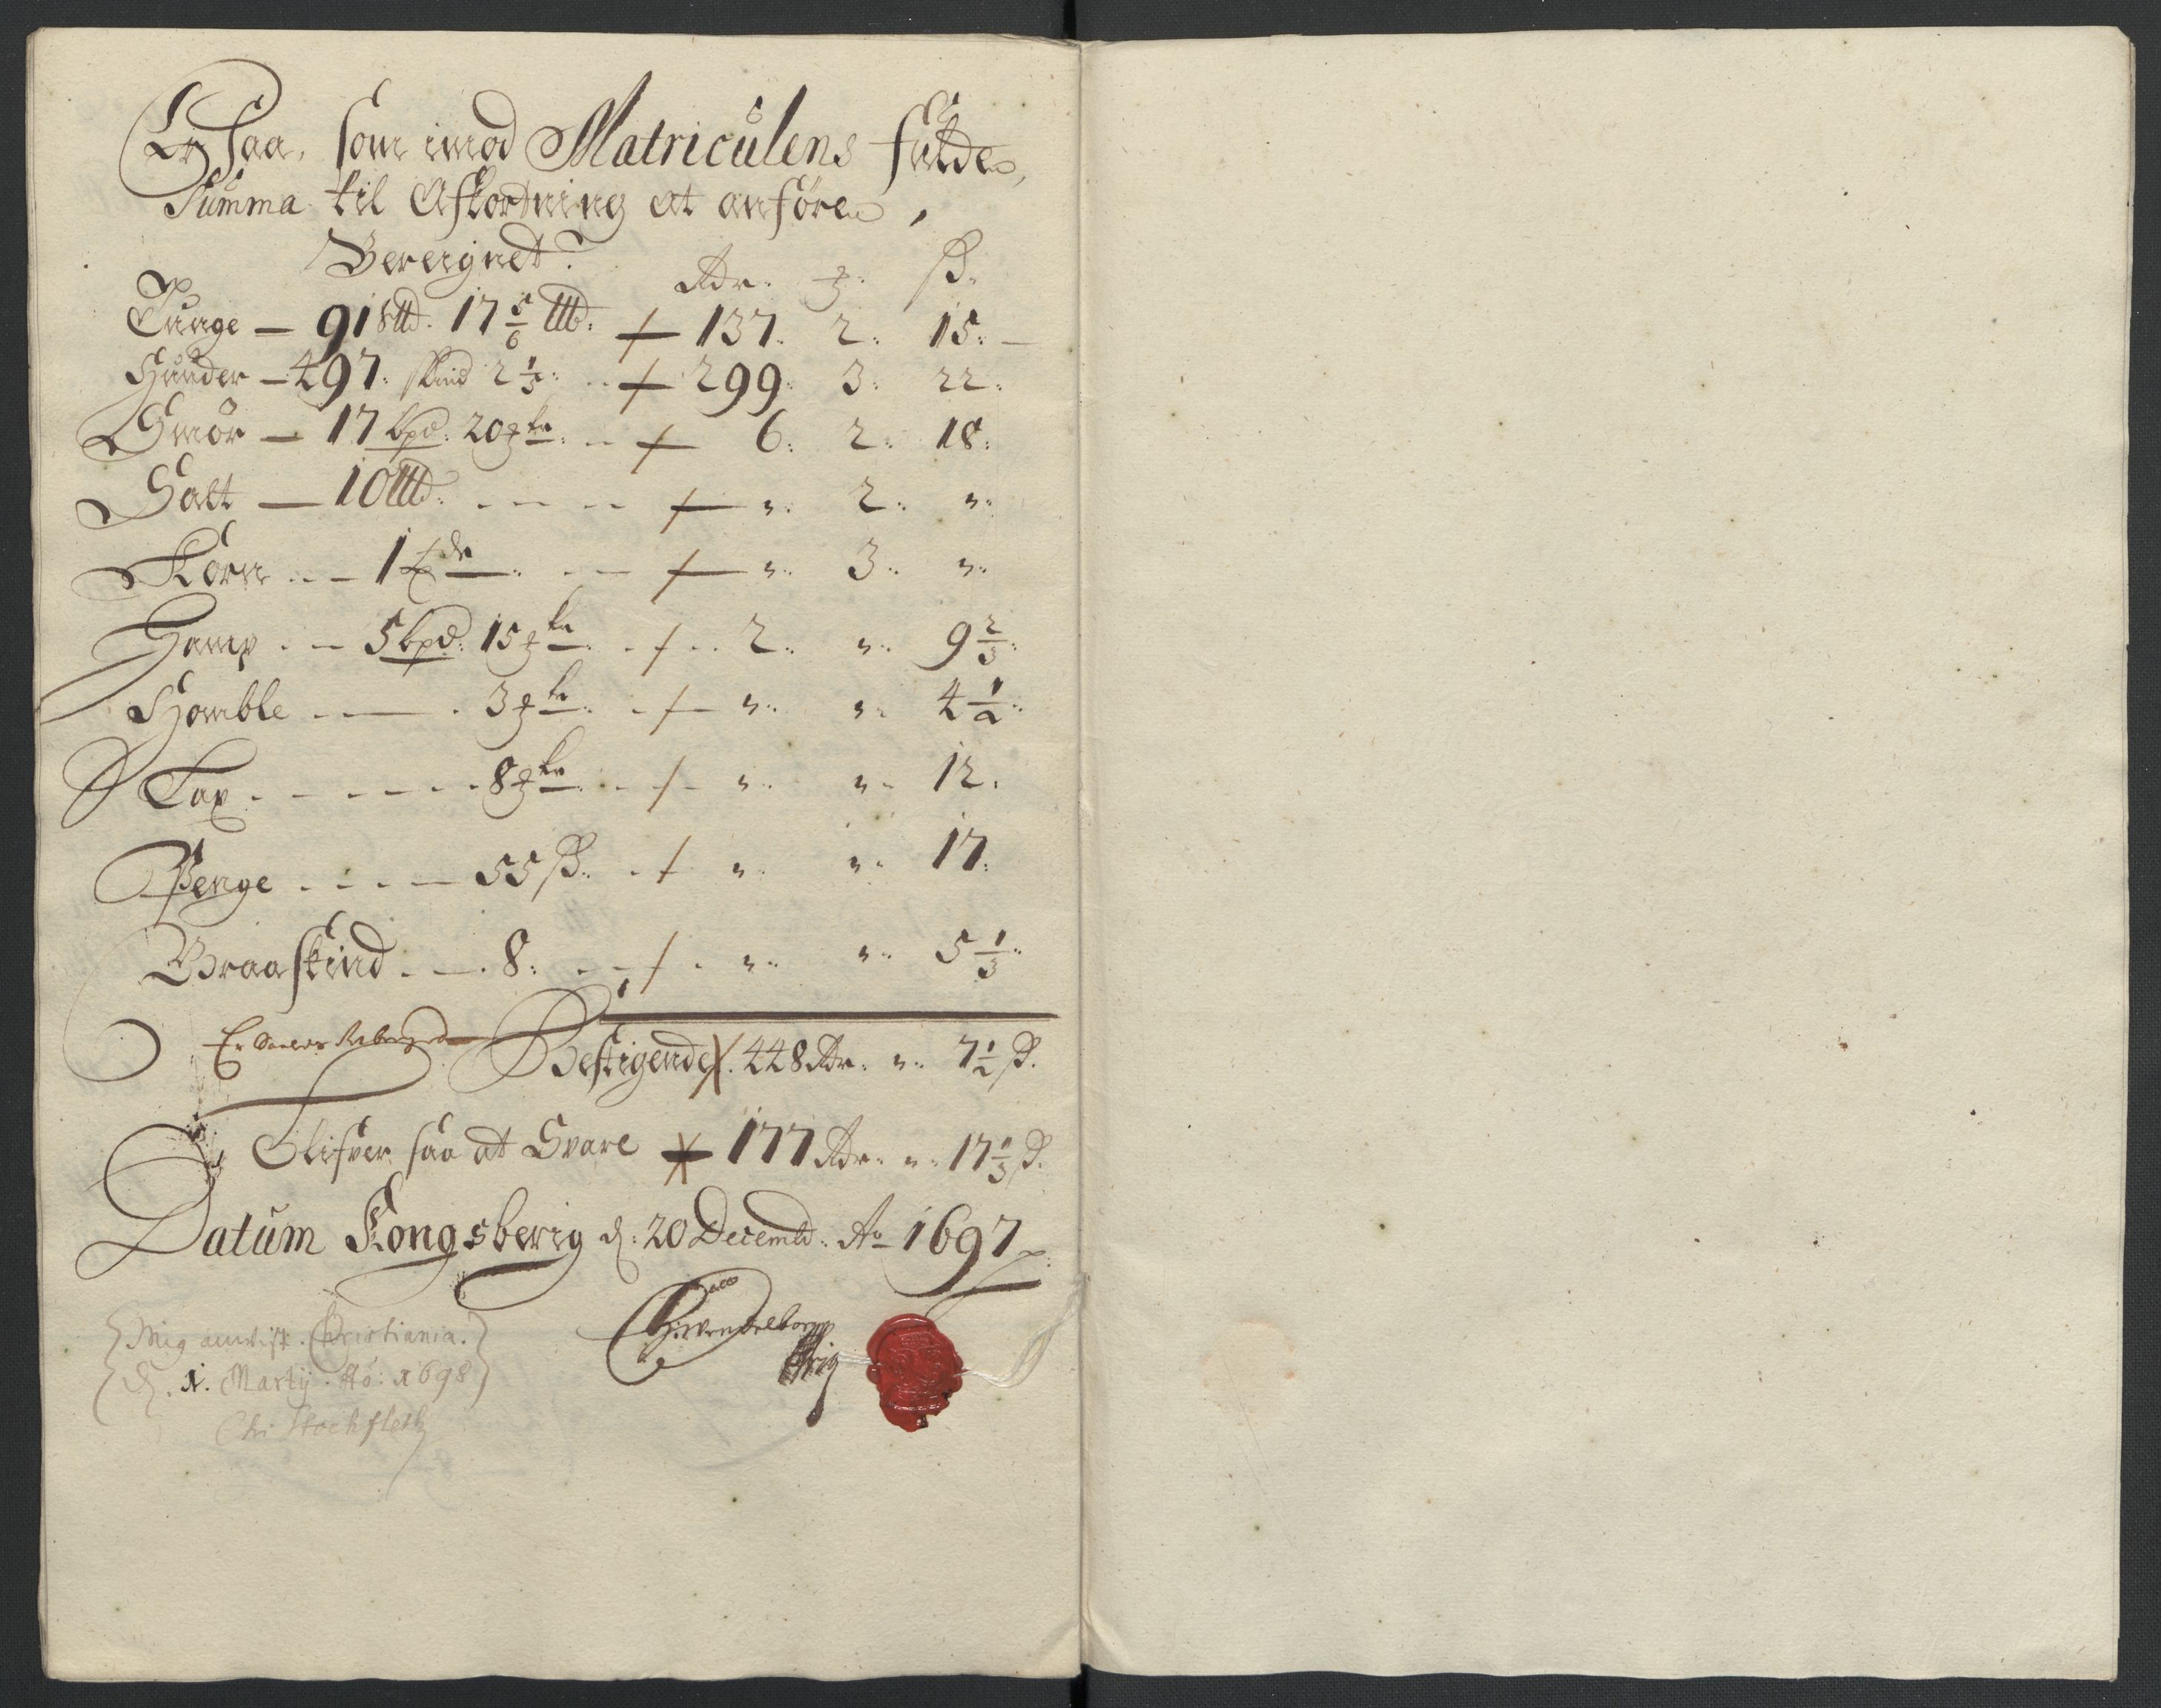 Er saa, som imod Matriculens fulde
Summa til Afkortning at anføre,
Beregnet:
Rdr. ß.
Tunge — 91 Sttd. 17 5/6 Lttd. — 137. 2. 15.
Huuder — 497. skind 2 1/3: — 299. 3. 22.
Smör — 17 bpd. 20 — 6. 2. 18.
Salt — 10 Lttd. — „ 2. „
Korn — 1 — „ 3. „
Hamp — 5 bpd. 15 — 2. „ 9 2/3.
Homble — 3 — „ „ 4 1/2.
Lax — 8 — „ „ 12.
Penge — 55 ß. — „ „ 17.
Graaskind — 8. — „ „ 5 1/3.
Er
Bestigende. 448 Rdr. „ 7 1/2 ß.
Blifver saa at Svare — 177 Rdr. „ 17 1/3 ß.
Datum Kongsberig d: 20 Decembr. Ao 1697
Mig anvist. Christiania.
d. 1. Martij. Ao: 1698
Stockfleth